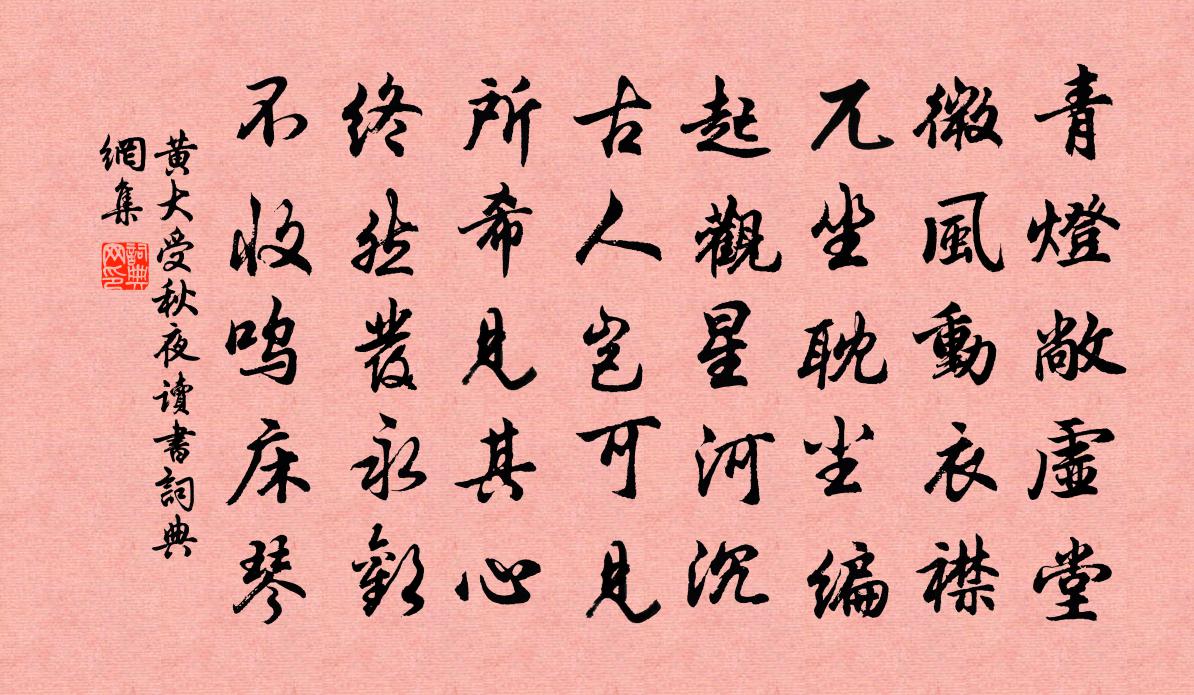 青燈敞虛堂
微風動衣襟
兀坐耽尘编
起觀星河沉
古人岂可見
所希見其心
终然發永歎
不收鸣床琴
黄大受秋夜讀書詞典
網集
詞典
网印